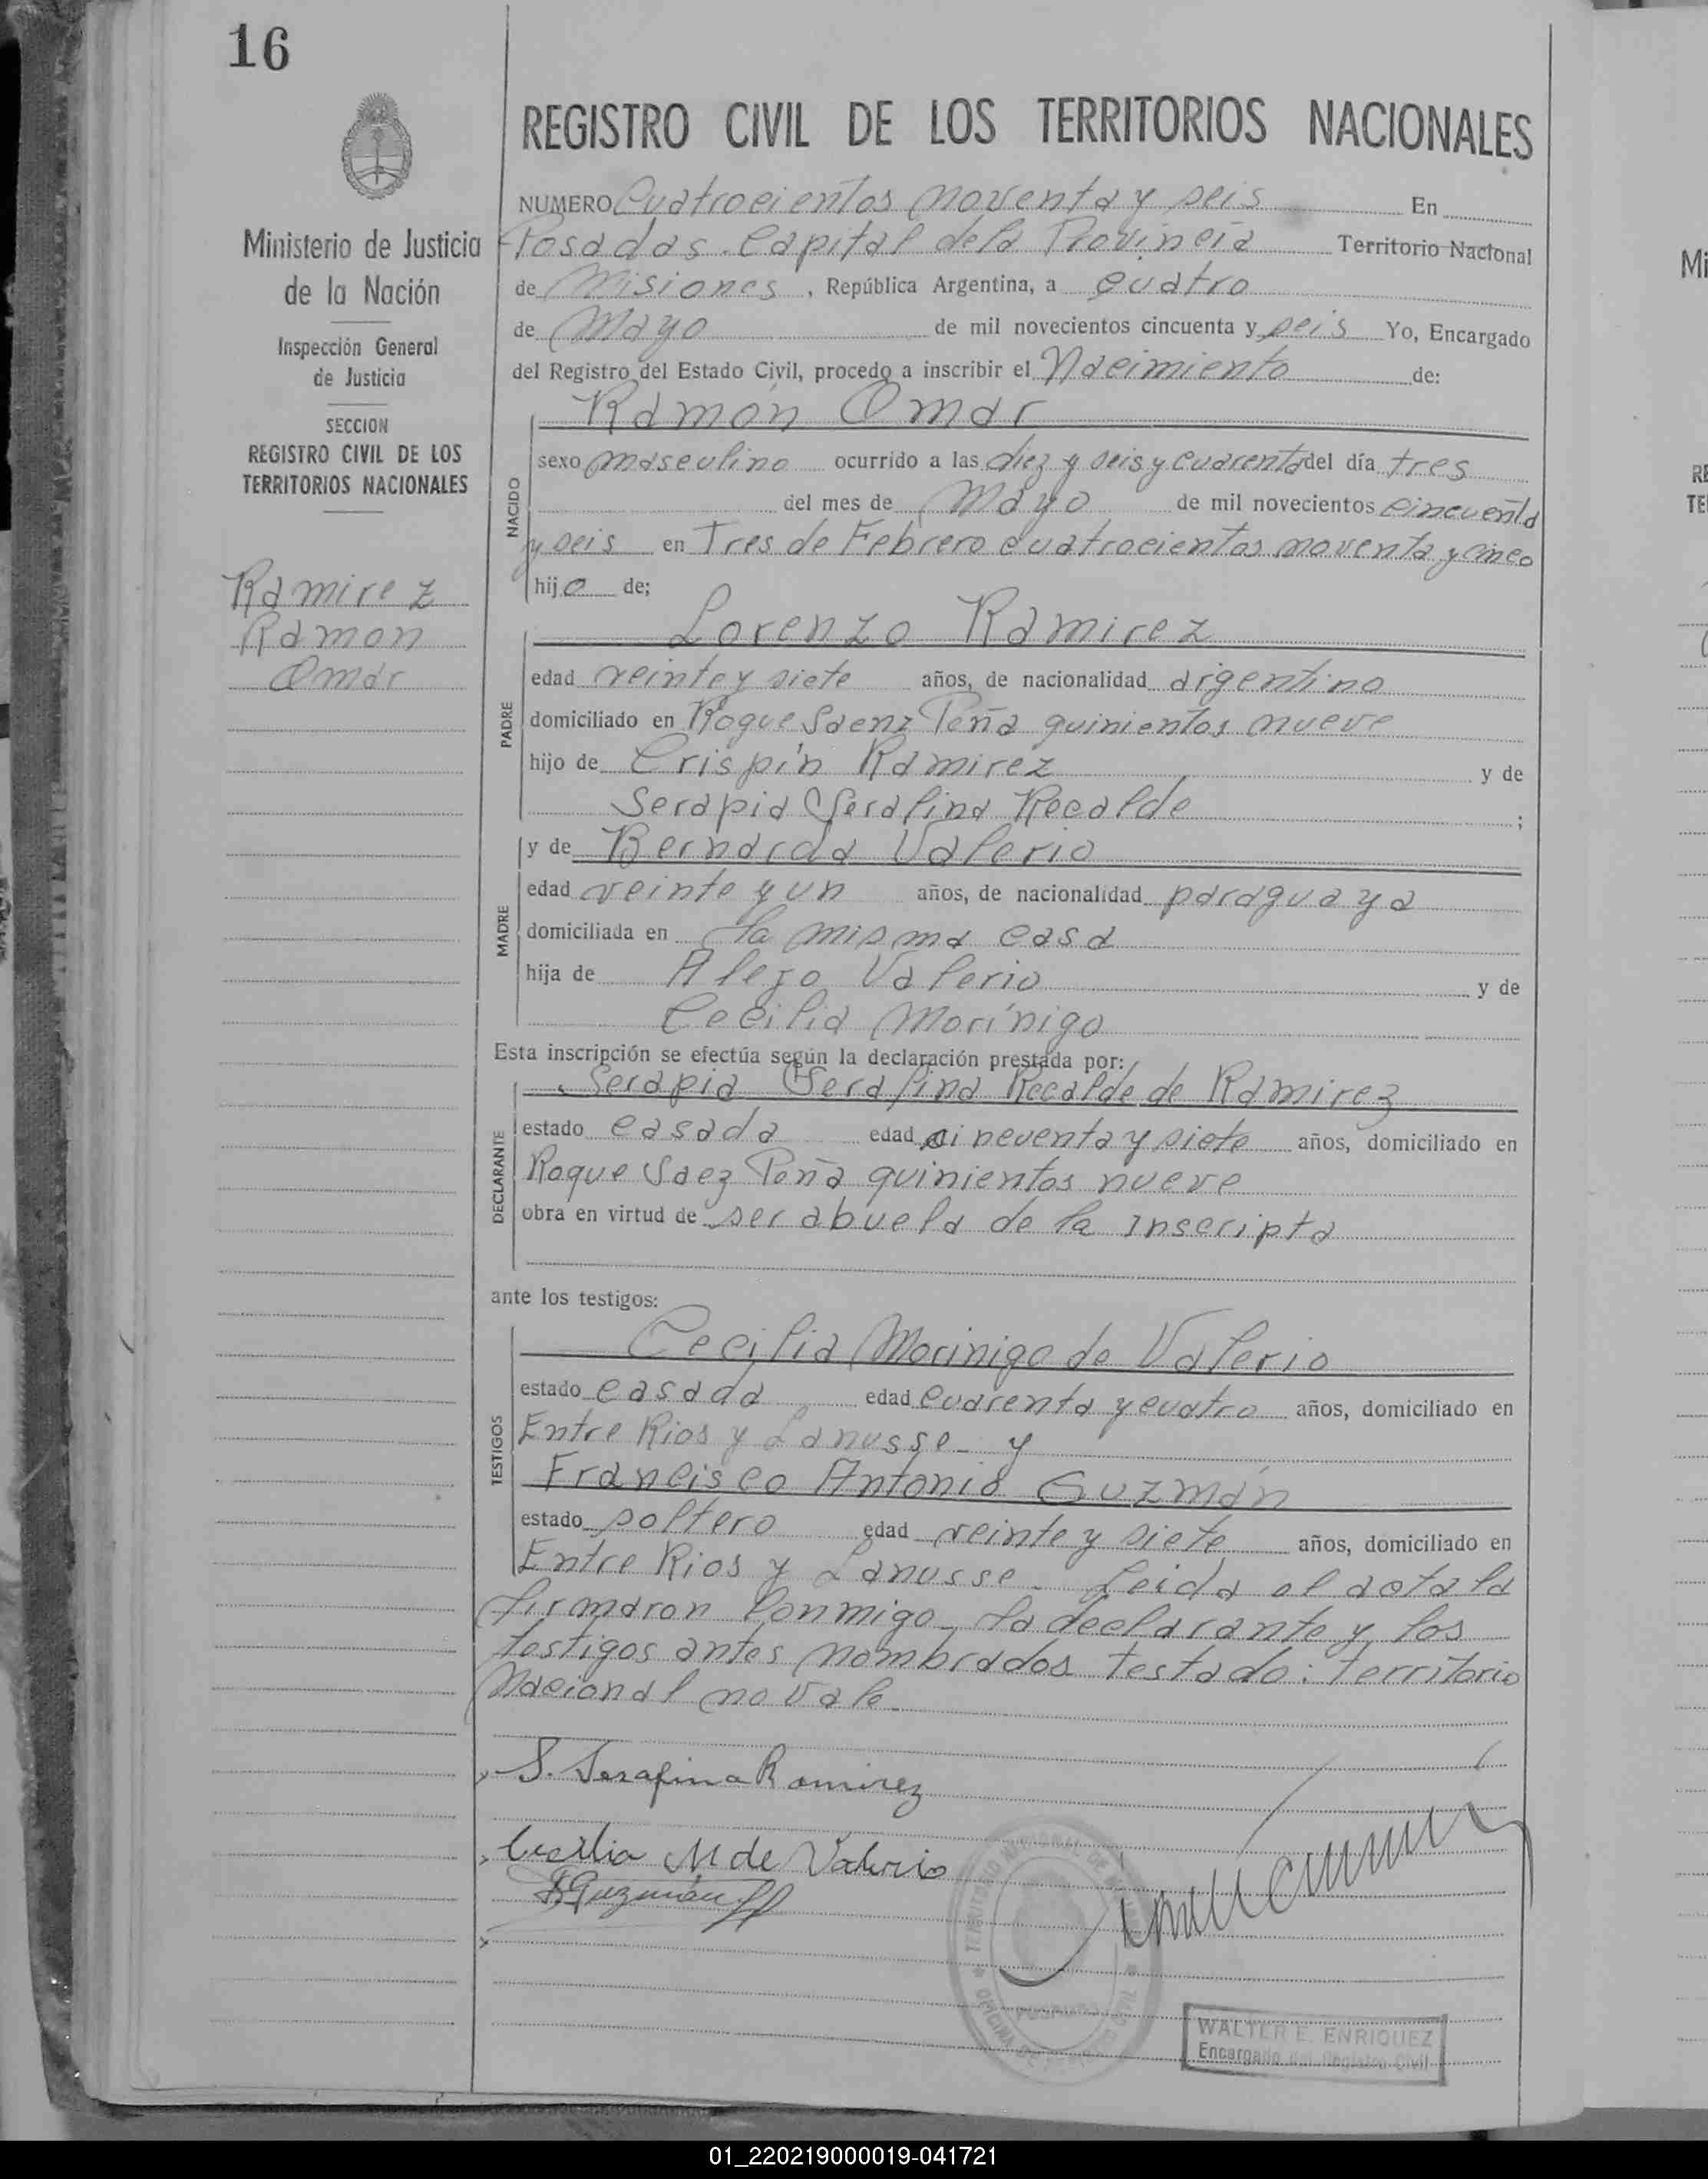 16
REGISTRO CIVIL DE LOS TERRITORIOS NACIONALES
Ministerio de Justicia
de la Nación
Inspección General
de Justicia
SECCION
REGISTRO CIVIL DE LOS
TERRITORIOS NACIONALES
Ramirez
Ramon
Omar
NUMERO Cuatrocientos noventa y seis En
Posadas. Capital de la Provincia Territorio Nacional
de Misiones, República Argentina, a cuatro
de Mayo de mil novecientos cincuenta y seis Yo, Encargado
del Registro del Estado Civil, procedo a inscribir el Nacimiento de:
NACIDO
Ramón Omar
sexo masculino ocurrido a las diez y seis y cuarenta del día tres
del mes de Mayo de mil novecientos cincuenta
y seis en Tres de Febrero cuatrocientos noventa y cinco
hijo de;
PADRE
Lorenzo Ramirez
edad veinte y siete años, de nacionalidad argentino
domiciliado en Roque Saenz Peña quinientos nueve
hijo de Crispín Ramirez y de
Serapia Serafina Recalde ;
MADRE
y de Bernarda Valerio
edad veinte y un años, de nacionalidad paraguaya
domiciliada en la misma casa
hija de Alejo Valerio y de
Cecilia Morínigo
Esta inscripción se efectúa según la declaración prestada por:
DECLARANTE
Serapia Serafina Recalde de Ramirez
estado casada edad cincuenta y siete años, domiciliado en
Roque Saez Peña quinientos nueve
obra en virtud de ser abuela de la inscripta
ante los testigos:
TESTIGOS
Cecilia Morinigo de Valerio
estado casada edad cuarenta y cuatro años, domiciliado en
Entre Rios y Lanusse - y
Francisco Antonio Guzmán
estado soltero edad veinte y siete años, domiciliado en
Entre Rios y Lanusse - Leida el acta la
firmaron conmigo - la declarante y los
testigos antes nombrados testado: territorio
nacional no vale -
S. Serafina Ramirez
Cecilia M de Valerio
F Guzmán
TERRITORIO NACIONAL DE
OFICINA CIVIL
POSADAS
WALTER E. ENRIQUEZ
Encargado del Registro Civil
Mi
RE
TE
01_220219000019-041721